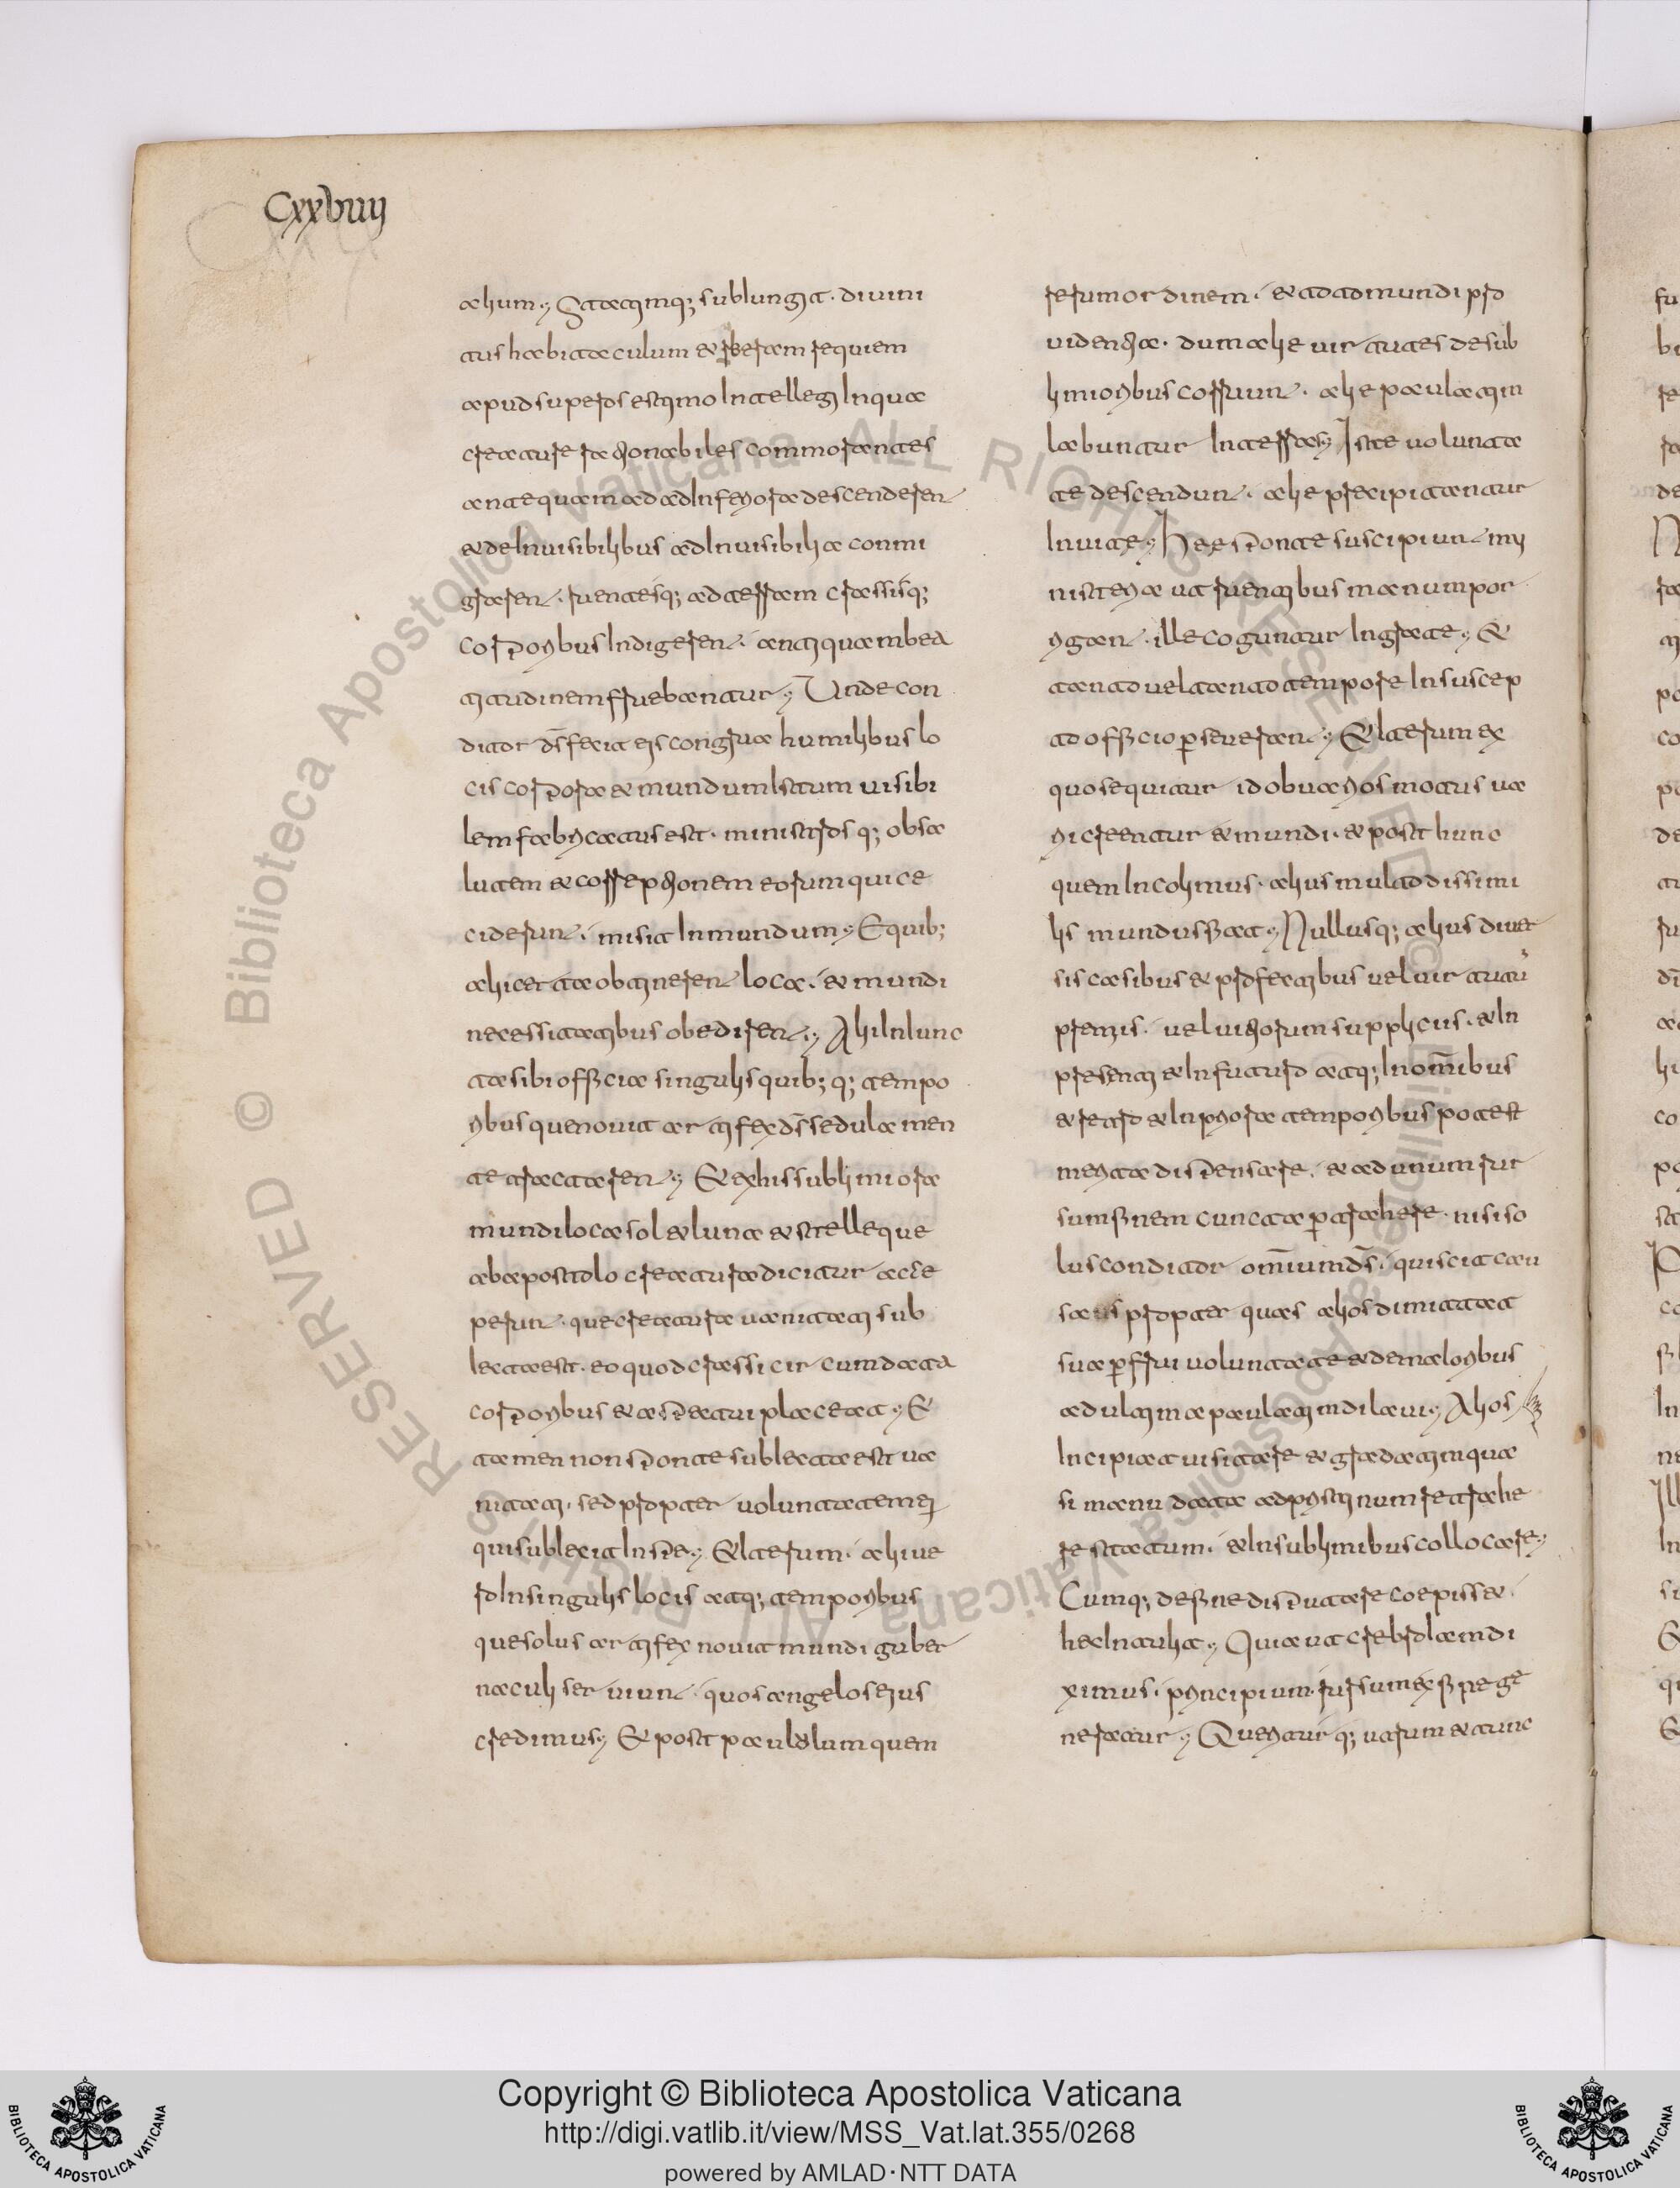 Cxxbuiij
alium; Statimq; subiungit. diuini
tus habitaculum & ueram requiem
apud superos estimo intellegi in qua
creature rationabiles commorantes
antequam ad ad inferiora descenderent
& de inuisibilibus ad inuisibilia conmi
grarent. ruentesq; ad terram crassisq;
corporibus indigerent. antiquam bea
titudinem fruebantur; Unde con
ditor d̄s fecit eis congrua humilibus lo
cis corpora & mundum istum uisibi
lem fabricatus est. ministrosq; ob sa
lutem & correptionem eorum qui ce
ciderunt. misit in mundum; E quib;
alii certa obtinerent loca. & mundi
necessitatibus obedirent; Alii iniunc
ta sibi officia singulis quib;q; tempo
ribus que nouit artifex d̄s sedula men
te tractarent; Et ex his sublimiora
mundi loca sol & luna & stelle que
ab apostolo creatura dicitur acce
perunt. que creatura uanitati sub
iecta est. eo quod crassi circumdata
corporibus & aspectui placeat; Et
tamen non sponte subiecta est ua
nitati. sed propter uoluntatem ei
qui subiecit in spe; Et iterum. alii ue
ro in singulis locis atq; temporibus
que solus artifex nouit mundi guber
naculis seruiunt. quos angelos eius
credimus; Et post paululum quem
rerum ordinem. & toto mundi pro
uidentia. dum alie uirtutes de sub
limioribus corruunt. alie paulatim
labuntur in terras; Iste uolunta
te descendunt. alie precipitantur
inuite; Hee sponte suscipiunt mi
nisteria ut ruentibus manum por
rigant. ille coguntur ingrate; Et
tanto uel tanto tempore in suscep
to officio perseuerant; Et iterum ex
quo sequitur id ob uarios motus ua
rii creentur & mundi. & post hunc
quem incolimus. alius multo dissimi
lis mundus fiat; Nullusq; alius diuer
sis casibus & profectibus uel uirtutū
premiis. uel uitiorum suppliciis. & in
presenti & in futuro atq; in om̄ibus
& retro & in priora temporibus potest
merita dispensare. & ad unum rur
sum finem cuncta pertrahere. nisi so
lus conditor om̄ium d̄s. qui scit cau
sas propter quas alios dimittat
sua perfrui uoluntate & de maioribus
ad ultima paulatim dilaui; Alios
incipiat uisitare & gradatim qua
si manu data ad pristinum retrahe
re statum. & in sublimibus collocare;
Cumq; de fine disputare coepisset.
hec intulit; Quia ut crebro iam di
ximus. principium rursum ex fine ge
neratur; Queritur q; utrum & tunc
Copyright © Biblioteca Apostolica Vaticana
http://digi.vatlib.it/view/MSS_Vat.lat.355/0268
powered by AMLAD·NTT DATA